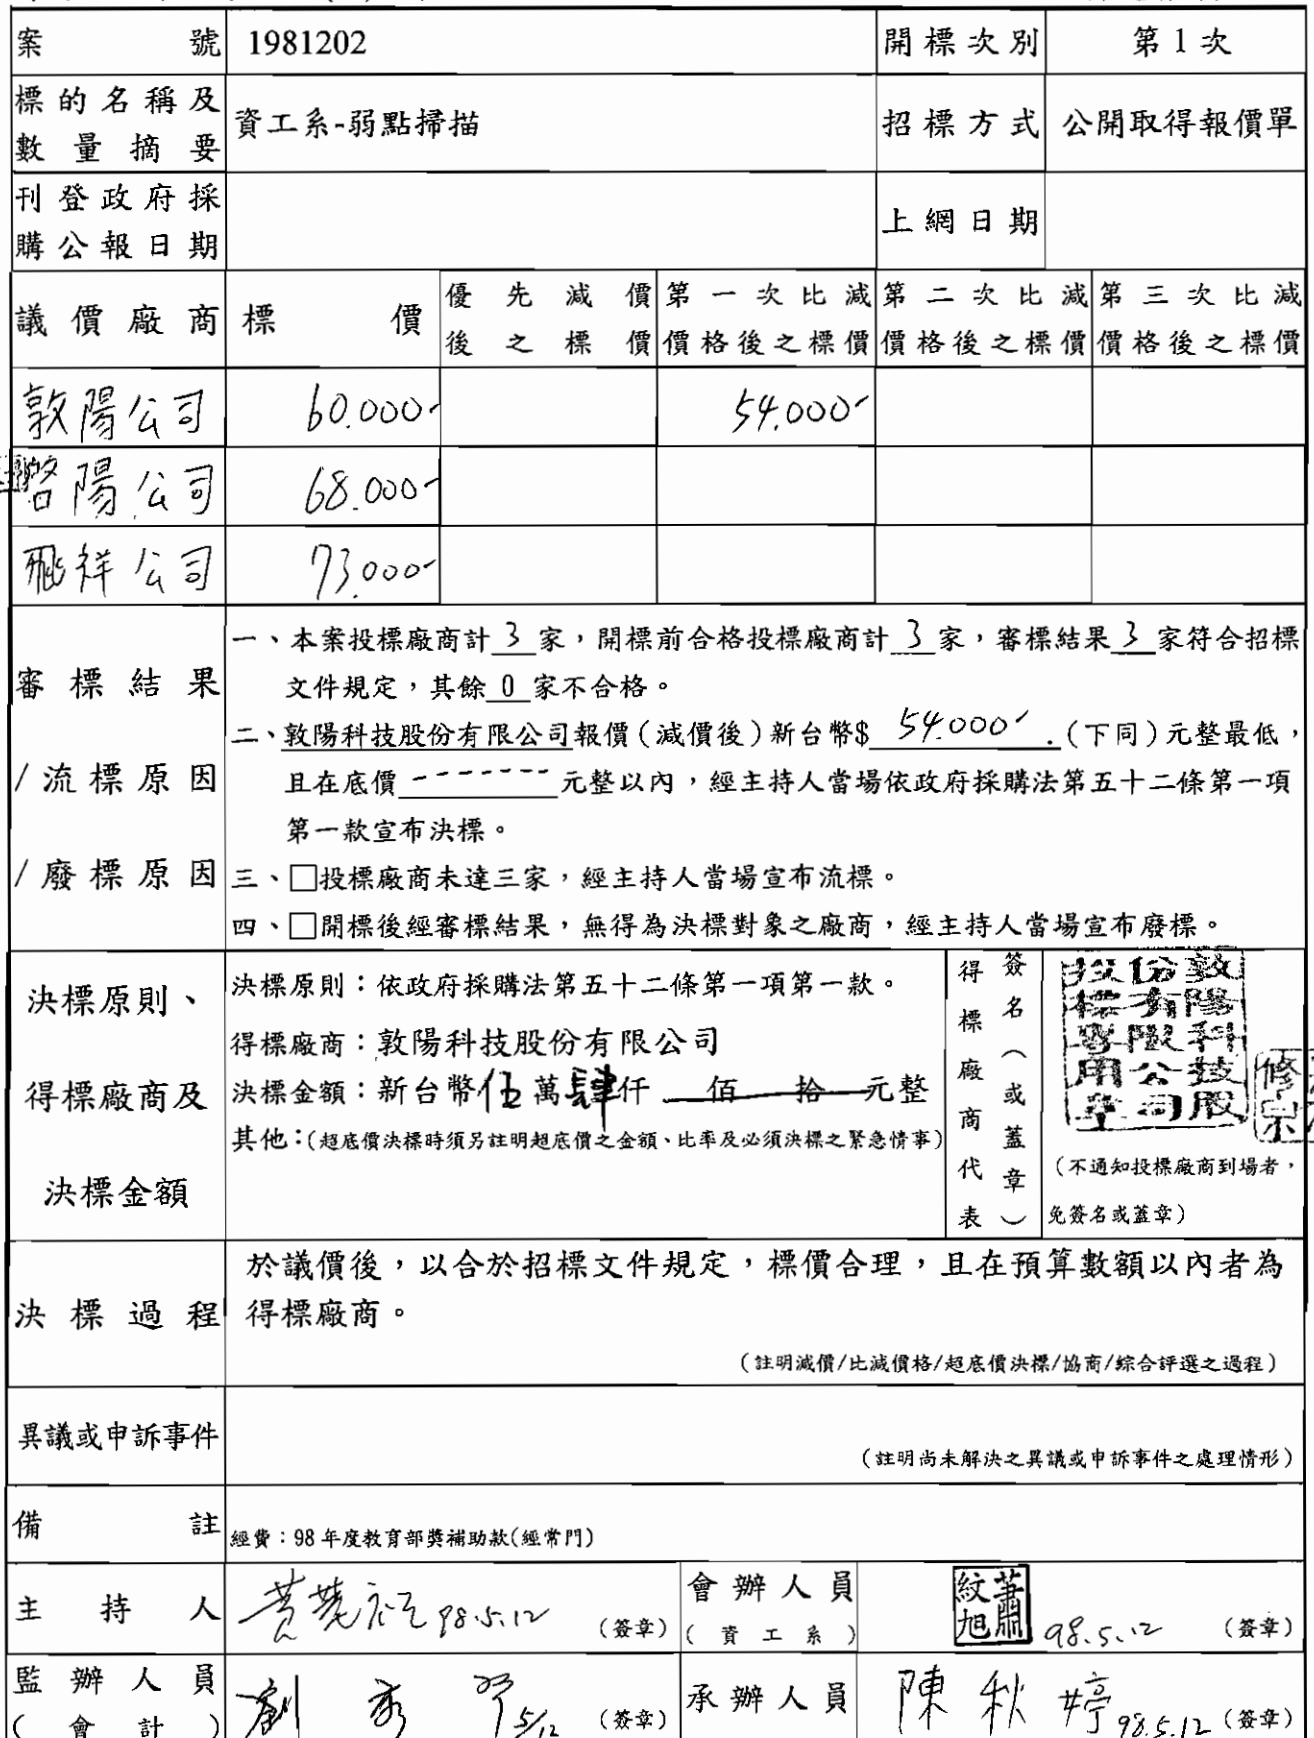 案號 1981202 開標次別 第1次
標的名稱及數量摘要 資工系-弱點掃描 招標方式 公開取得報價單
刊登政府採購公報日期 上網日期
議價廠商 標價 優先減價後之標價 第一次比減價格後之標價 第二次比減價格後之標價 第三次比減價格後之標價
敦陽公司 60.000- 54.000-
啓陽公司 68.000-
飛祥公司 73.000-
審標結果
/流標原因
/廢標原因
一、本案投標廠商計 3 家,開標前合格投標廠商計 3 家,審標結果 3 家符合招標
文件規定,其餘 0 家不合格。
二、敦陽科技股份有限公司報價(減價後)新台幣$ 54.000- .(下同)元整最低,
且在底價 ------- 元整以內,經主持人當場依政府採購法第五十二條第一項
第一款宣布決標。
三、□投標廠商未達三家,經主持人當場宣布流標。
四、□開標後經審標結果,無得為決標對象之廠商,經主持人當場宣布廢標。
決標原則、
得標廠商及
決標金額
決標原則:依政府採購法第五十二條第一項第一款。
得標廠商:敦陽科技股份有限公司
決標金額:新台幣伍萬肆仟 佰 拾 元整
其他:(超底價決標時須另註明超底價之金額、比率及必須決標之緊急情事)
得標廠商代表
簽名(或蓋章)
敦陽科技股
份有限公司
投標專用章
修
(不通知投標廠商到場者,
免簽名或蓋章)
決標過程
於議價後,以合於招標文件規定,標價合理,且在預算數額以內者為
得標廠商。
(註明減價/比減價格/超底價決標/協商/綜合評選之過程)
異議或申訴事件
(註明尚未解決之異議或申訴事件之處理情形)
備註 經費:98 年度教育部獎補助款(經常門)
主持人 98.5.12 (簽章) 會辦人員(資工系) 蕭紋旭 98.5.12 (簽章)
監辦人員(會計) 劉 5/12 (簽章) 承辦人員 陳秋婷 98.5.12 (簽章)